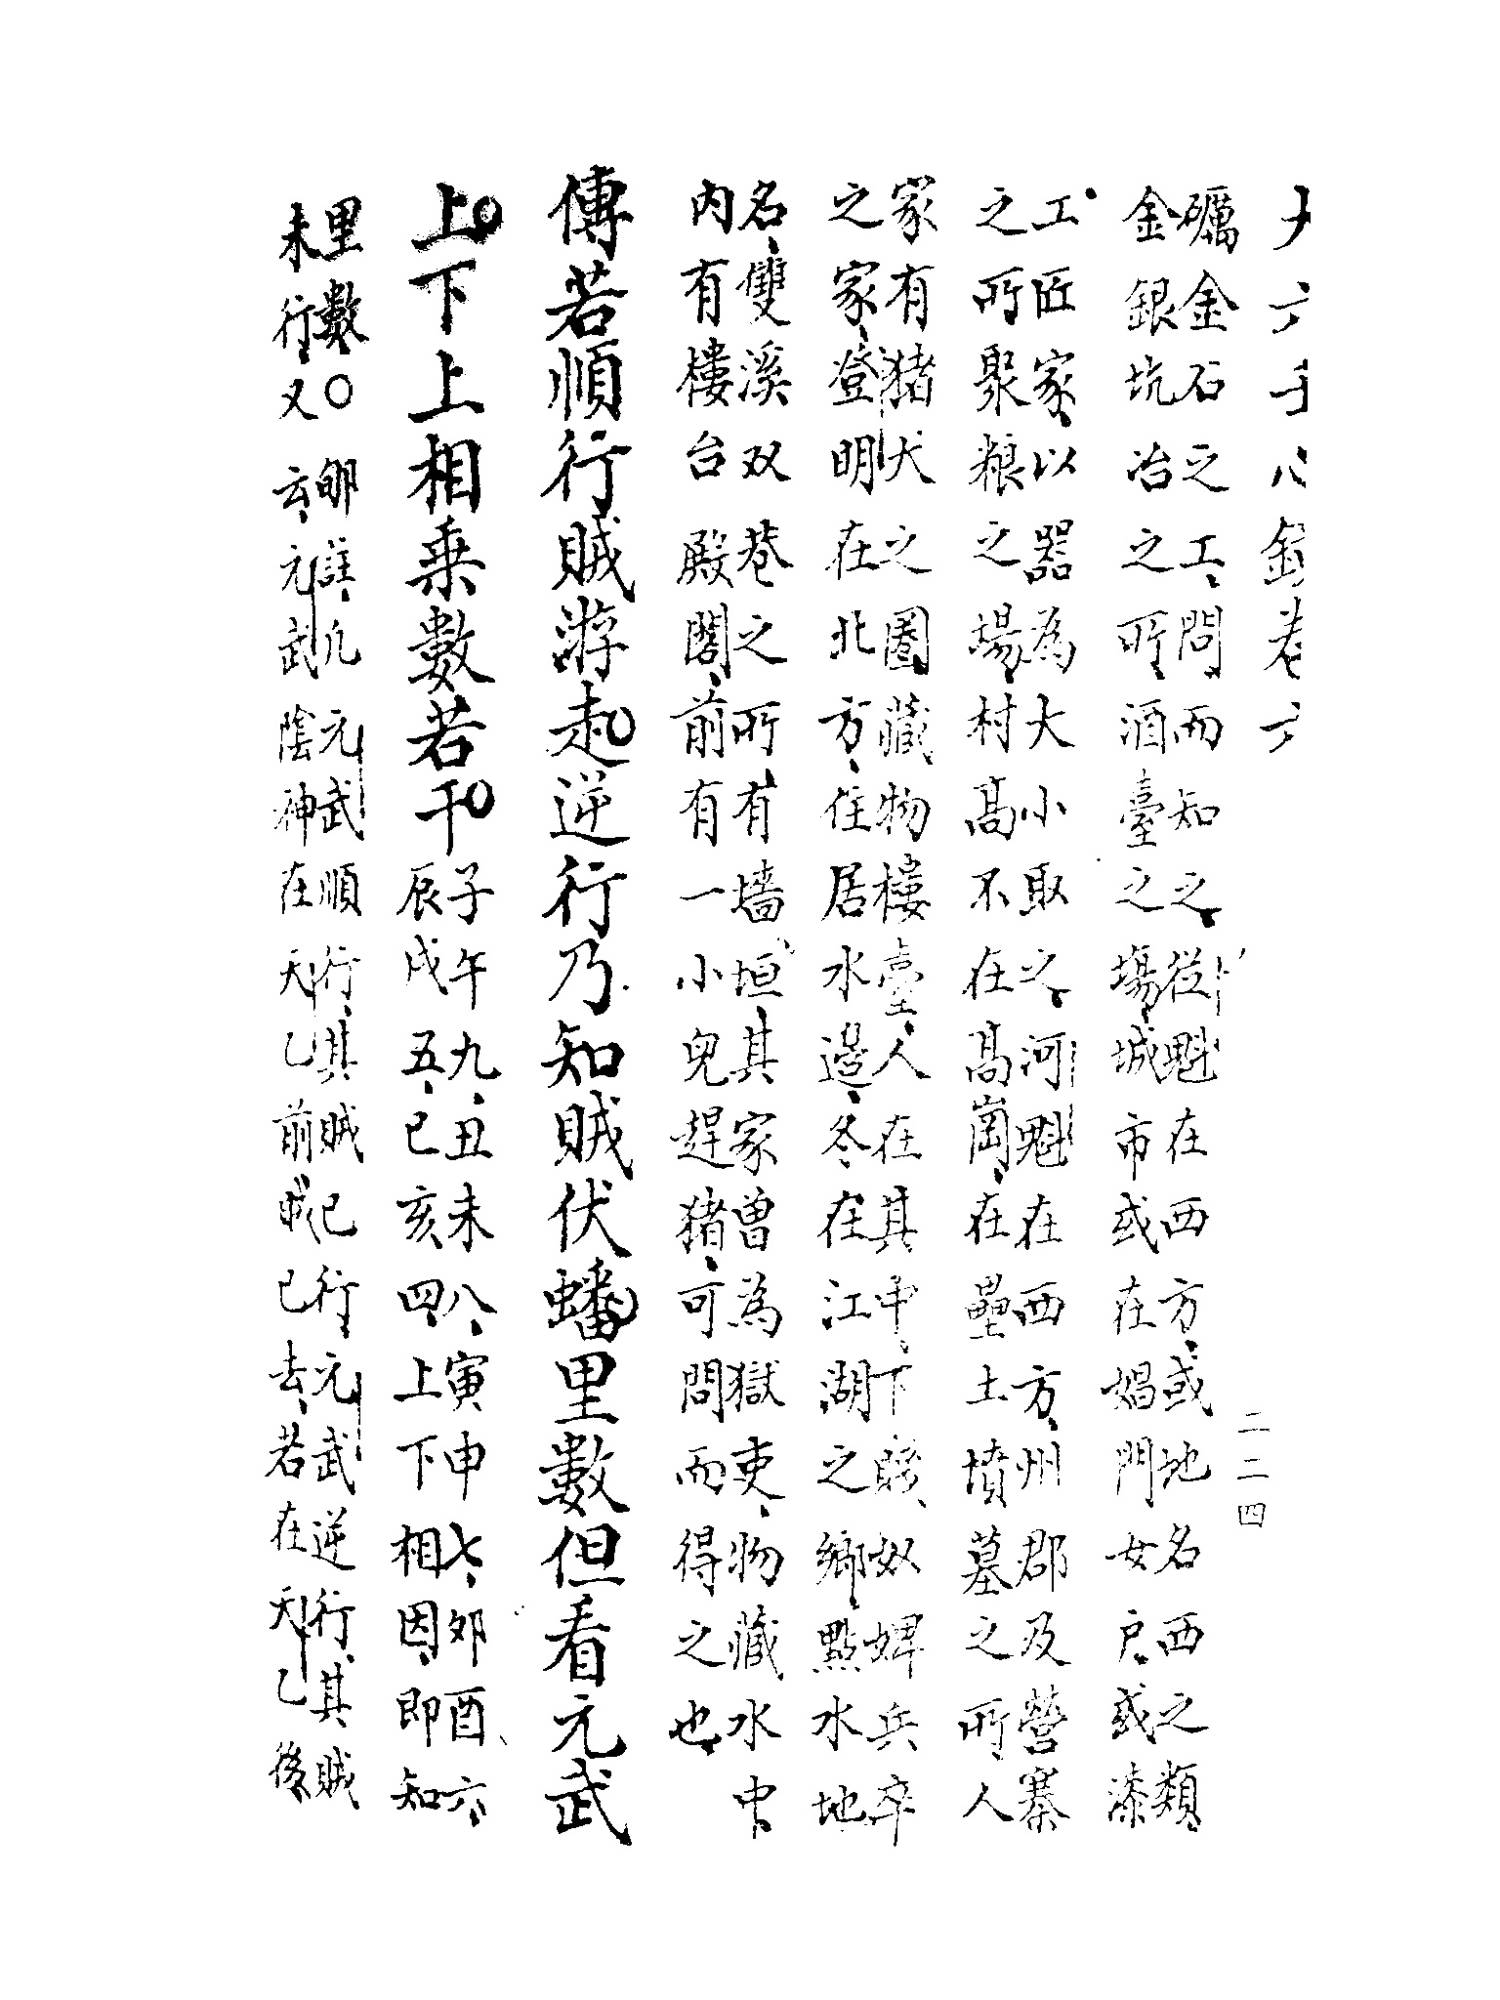 礪金石之工、問而知之、從魁在西方、或地名西之類、
金銀坑冶之所、酒臺之場、城市或在娼門女户、或漆
工匠家、以器為大小取之、河魁在西方、州郡及營寨
之所聚粮之場、村高不在高崗、在壘土墳墓之所人
家有猪犬之圈藏物樓臺、人在其中、下賤、奴婢兵卒
之家、登明在北方、住居水邉、冬在江湖之鄉、點水地
名、雙溪双巷之所、有墻垣、其家曾為獄吏、物藏水中、
内有樓台殿閣、前有有一小兒趕猪、可問而得之也、
傳若順行賊游起逆行乃知賊伏蟠里數但看元武
上下上相乘數若干
子午九、丑未八、寅申七、夘酉六、
辰戌五、巳亥四、上下相因、即知
里數、〇 註、凡元武順行、其賊已行、元武逆行、其賊
未行、又云、元武陰神在天乙前、賊已去、若在天乙後
二二四